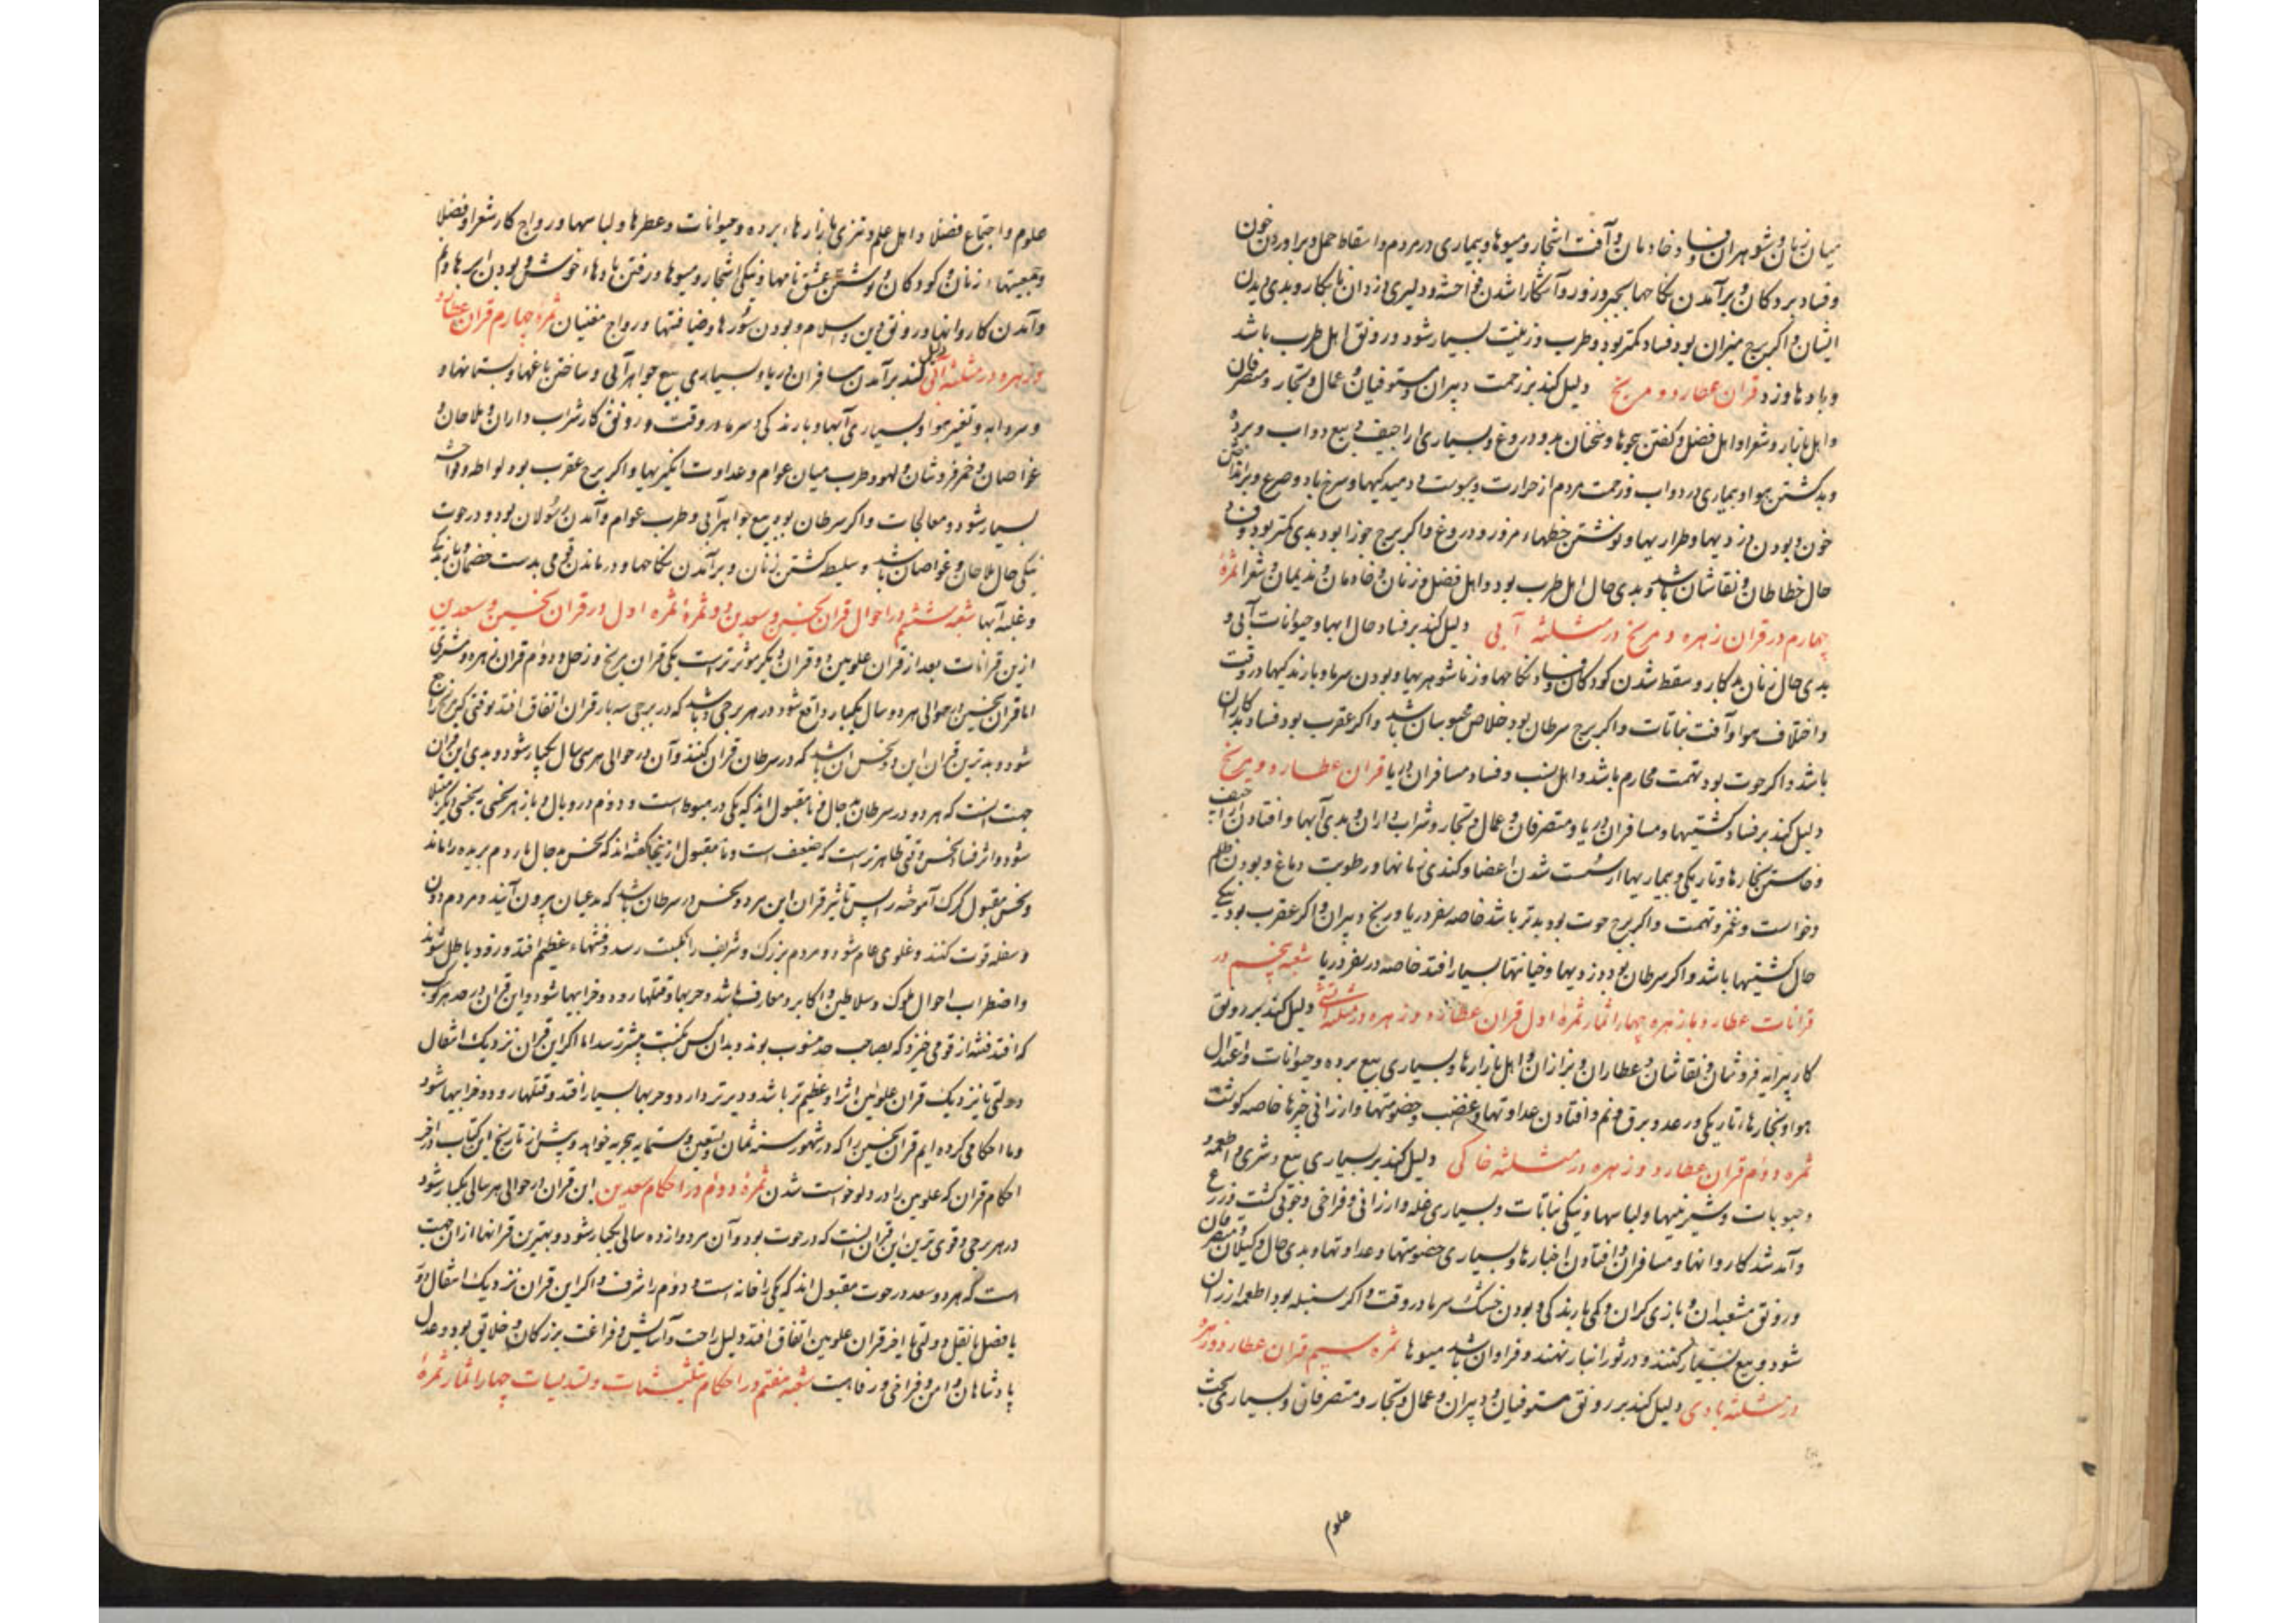 میان زنان و شوهران و فساد خادمان و آفت اشجار و میوها و بیماری در مردم و اسقاط حمل و برآوردن خون
و فساد بردکان و برآمدن نکاحها بجبر و زور و آشکارا شدن فواحشه و دلیری دزدان نابکار و بدی دیدن
ایشان و اگر برج میزان بود فساد کمتر بود و طرب و زینت بسیار شود و رونق اهل طرب باشد
و بادها وزد قران عطارد و مریخ دلیل کند بر زحمت دبیران و مستوفیان و عمال و تجار و متصرفان
و اهل بازار و شعرا و اهل فضل و گفتن هجوها و سخنان بد و دروغ و بسیاری اراجیف و بیع دواب و برده
و بد گشتن هوا و بیماری در دواب و زحمت مردم از حرارت و یبوست و دمیدگیها و سرخ باد و صرع و برانداختن
خون و بودن دزدیها و طراریها و نوشتن خطهاء مزور و دروغ و اگر برج جوزا بود بدی کمتر بود و
حال خطاطان و نقاشان باشد و بدی حال اهل طرب بود و اهل فضل و زنان و خادمان و ندیمان و شعرا ثمرهٔ
چهارم در قران زهره و مریخ در مثلثه آبی دلیل کند بر فساد حال ابها و حیوانات آبی و
بدی حال زنان بدکار و سقط شدن کودکان و فساد نکاحها و زناشوهریها و بودن سرما و بارندگیها در وقت
و اختلاف هوا و آفت نباتات و اگر برج سرطان بود خلاص محبوسان باشد و اگر عقرب بود فساد بدکاران
باشد و اگر حوت بود تهمت محارم باشد و اهل نسب و فساد مسافران دریا قران عطارد و مریخ
دلیل کند بر فساد کشتیها و مسافران دریا و متصرفان و عمال و تجار و شراب داران و بدی آبها و افتادن اراجیف
و خاستن بخارها و تاریکی و بیماریها از سست شدن اعضا و کندی زبانها و رطوبت دماغ و بودن ظلم
و خواست و غمز و تهمت و اگر برج حوت بود بدتر باشد خاصه سفر دریا و رنج دبیران و اگر عقرب بود نیکی
حال کشتیها باشد و اگر سرطان بود دزدیها و خیانتها بسیار افتد خاصه در سفر دریا شعبه پنجم در
قرانات عطارد با زهره چهار اثمار ثمرهٔ اول قران عطارد و زهره در مثلثه آتشی دلیل کند بر رونق
کار پیرایه فروشان و نقاشان و عطاران و بزازان و اهل بازارها و بسیاری بیع برده و حیوانات و اعتدال
هوا و بخارها و تاریکی و رعد و برق و نم و افتادن عداوتها و غضب و خصومتها و ارزانی چیزها خاصه گوشت
ثمره دوم قران عطارد و زهره در مثلثه خاکی دلیل کند بر بسیاری بیع و شری و اطعمه
و حبوبات و شیرینیها و لباسها و نیکی نباتات و بسیاری غله و ارزانی و فراخی و خوبی کشت و زرع
و آمد شد کاروانها و مسافران و افتادن اخبارها و بسیاری خصومتها و عداوتها و بدی حال وکیلان و متصرفان
و رونق مشعبدان و بازی گران و کمی بارندگی و بودن خشک سرما در وقت و اگر سنبله بود اطعمه ارزان
شود و بیع بسیار کنند و در ثور انبار نهند و فراوان باشد میوها ثمره سیم قران عطارد و زهره
در مثلثه بادی دلیل کند بر رونق مستوفیان و دبیران و عمال و تجار و متصرفان و بسیاری بحث
علوم
علوم و اجتماع فضلا و اهل علم و تیزی بازارهاء برده و حیوانات و عطرها و لباسها و رواج کار شعرا و فضلا
و جمعیتهاء زنان و کودکان و نوشتن عشق نامها و نیکی اشجار و میوها و رفتن بادهاء خوش و بودن ابرها و نم
و آمدن کاروانها و رونق دین و اسلام و بودن سورها و ضیافتها و رواج مغنیان ثمرهٔ چهارم قران عطارد
و زهره در مثلثه آبی دلیل کند بر آمدن مسافران دریا و بسیاری بیع جواهر آبی و ساختن باغها و بستانها و
و سردابه و تغیر هوا و بسیاری آبها و بارندگی و سرما در وقت و رونق کار شراب داران و ملاحان و
غواصان و خمر فروشان و لهو و طرب میان عوام و عداوت انگیزیها و اگر برج عقرب بود لواطه و فواحشه
بسیار شود و معالجات و اگر سرطان بود بیع جواهر آبی و طرب عوام و آمدن رسولان بود و در حوت
نیکی حال ملاحان و غواصان باشد و سلیطه گشتن زنان و برآمدن نکاحها و درماندن قومی بدست خصمان و بارندگی
و غلبه آبها شعبه ششم در احوال قران نحسین و سعدین و دو ثمره ثمره اول در قران نحسین و سعدین
ازین قرانات بعد از قران علویین دو قران دیگر موثرترست یکی قران مریخ و زحل و دوم قران زهره و مشتری
اما قران نحسین در حوالی هر دو سال یکبار واقع شود در هر برجی و باشد که در برجی سه بار قران اتفاق افتد بوقتی که مریخ راجع
شود و بدترین قران این دو نحس آن باشد که در سرطان قران کنند و آن در حوالی هر سی سال یکبار شود و بدی این قران
جهت آنست که هر دو در سرطان بد حال و نامقبول اند که یکی در هبوط است و دوم در وبال و باز هر نحسی بنحسی دیگر مبتلا
شود و اثر فساد نحس وقتی ظاهرتر است که ضعیف است و نامقبول ازینجا گفته اند که نحس بد حال مار دم بریده را ماند
و نحس مقبول گرگ آموخته را پس تاثیر قران این هر دو نحس در سرطان باشد که مدعیان بیرون آیند و مردم دون
و سفله قوت کنند و غلوی عام شود و مردم بزرگ و شریف را نکبت رسد و فتنهاء عظیم افتد و زود باطل شوند
و اضطراب احوال ملوک و سلاطین و اکابر و معارف باشد و حربها و قتلها رود و خرابیها شود و این قران در حد هر کوکب
که افتد فتنه از قومی خیزد که بصاحب حد منسوب بوند و بدان کس نکبت بیشتر رسد اما اگر این قران نزدیک انتقال
دولتی یا نزدیک قران علویین اثر او عظیم تر باشد و دیرتر دارد و حربها بسیار افتد و قتلها رود و خرابیها شود
و ما احکامی کرده ایم قران نحسین را که در شهور سنه ثمان و تسعین و ستمایه بخواهد و پیش از تاریخ این کتاب در آخر
احکام قران که علویین را در دلو خواست شدن ثمرهٔ دوم در احکام سعدین این قران در حوالی هر سالی یکبار شود
در هر برجی و قوی ترین این قران آنست که در حوت بود و آن هر دوازده سالی یکبار شود و بهترین قرانها از آن جهت
است که هر دو سعد در حوت مقبول اند که یکی را خانه است و دوم را شرف و اگر این قران نزدیک انتقال دو
یا فصل یا نقل دولتی یا آخر قران علویین اتفاق افتد دلیل راحت و آسایش و فراغت بزرگان و خلایق بود و عدل
پادشاهان و امن و فراخی و رفاهیت شعبه هفتم در احکام تثلیثات و تسدیسات چهار اثمار ثمرهٔ